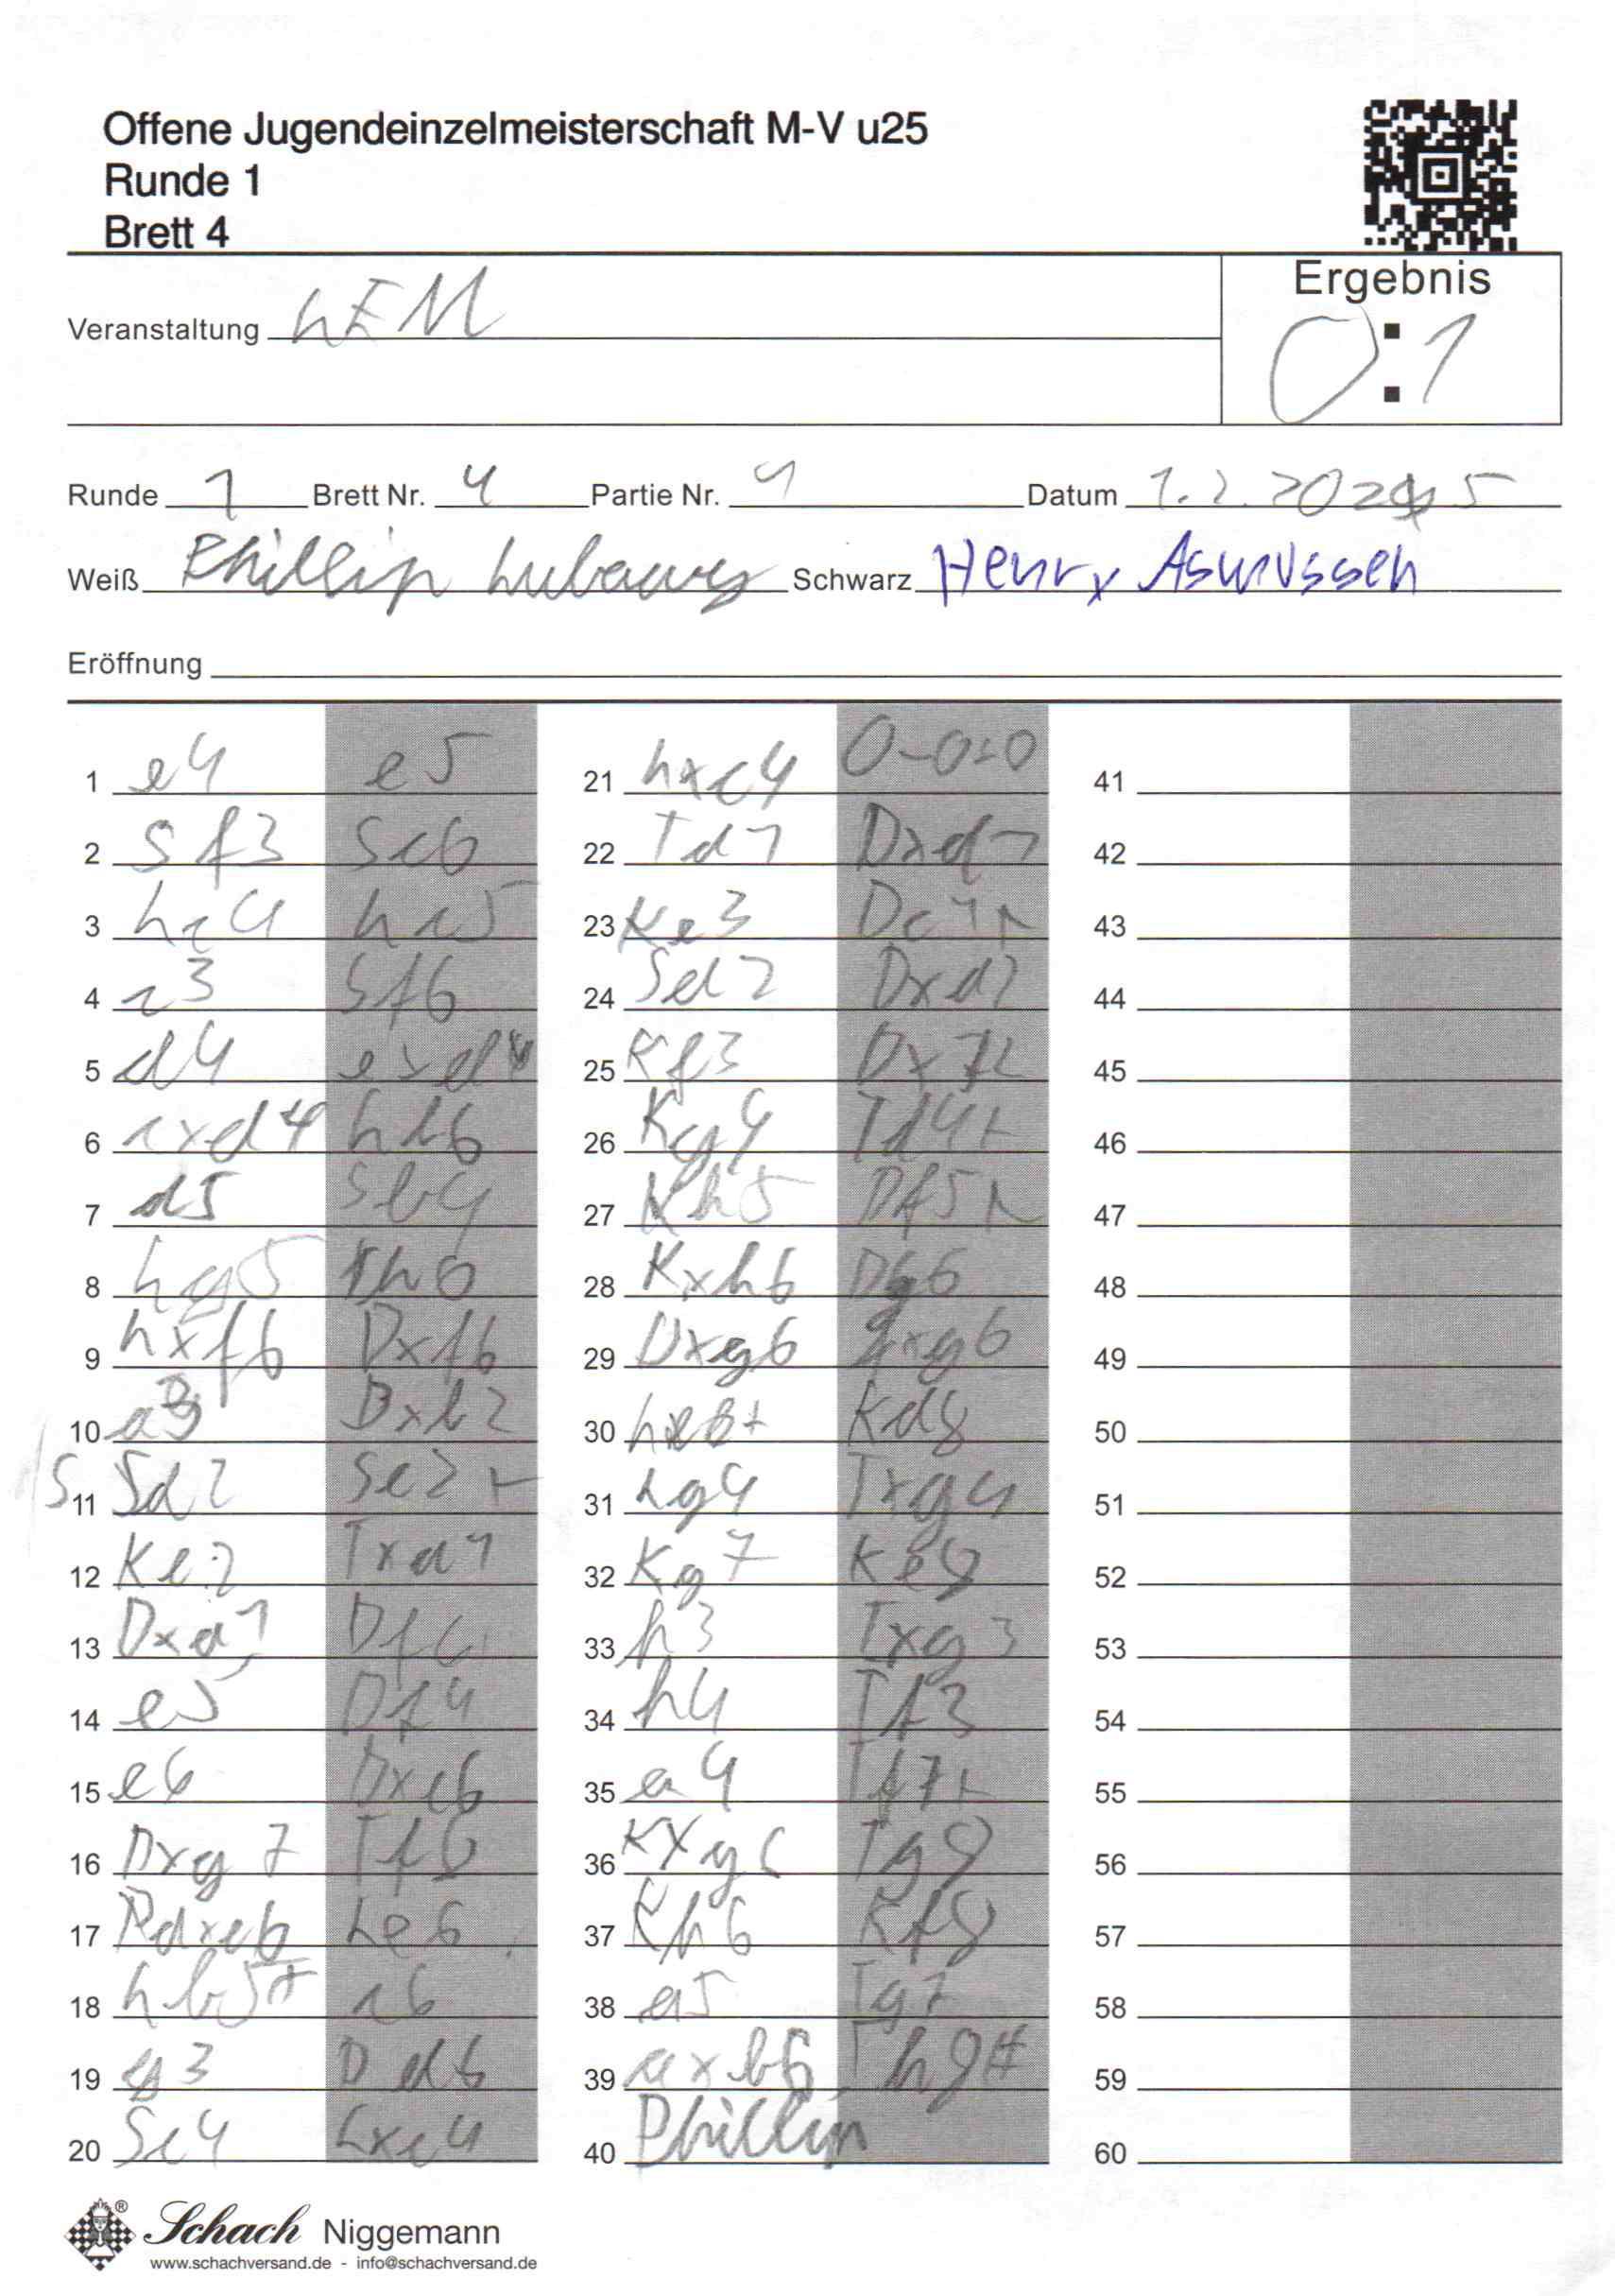 Offene Jugendeinzelmeisterschaft M-V u25
Runde 1
Brett 4
Ergebnis
Veranstaltung LEM
0:1
Runde 1 Brett Nr. 4 Partie Nr. 1 Datum 1.2.2025
Weiß Phillip Schwarz Henry Asmussen
Eröffnung
1 e4 e5 21 Lxc4 0-0-0 41
2 Sf3 Sc6 22 Td1 Dxd1 42
3 Lc4 Lc5 23 Ke3 Dc1+ 43
4 c3 Sf6 24 Sd2 Dxd2 44
5 d4 exd4 25 Kf3 45
6 cxd4 Lb6 26 Kg4 Td4+ 46
7 d5 Sb4 27 Kh5 Df5+ 47
8 Lg5 h6 28 Kxh6 Dg6 48
9 Lxf6 Dxf6 29 Dxg6 fxg6 49
10 a3 Dxb2 30 Le6+ Kd8 50
11 Sd2 Sc2+ 31 Lg4 Txg4 51
12 Ke2 Sxa1 32 Kg7 Ke8 52
13 Dxa1 Df6 33 h3 Txg3 53
14 e5 Df4 34 h4 Tf3 54
15 e6 Dxe6 35 a4 Tf7+ 55
16 Dxg7 Tf8 36 Kxg6 Tg8 56
17 dxe6 Le6 37 Kh6 Kf8 57
18 Lb5+ c6 38 a5 Tg7 58
19 g3 Dd6 39 axb6 Th8# 59
20 Sc4 Lxc4 40 Phillip 60
Schach Niggemann
www.schachversand.de - info@schachversand.de